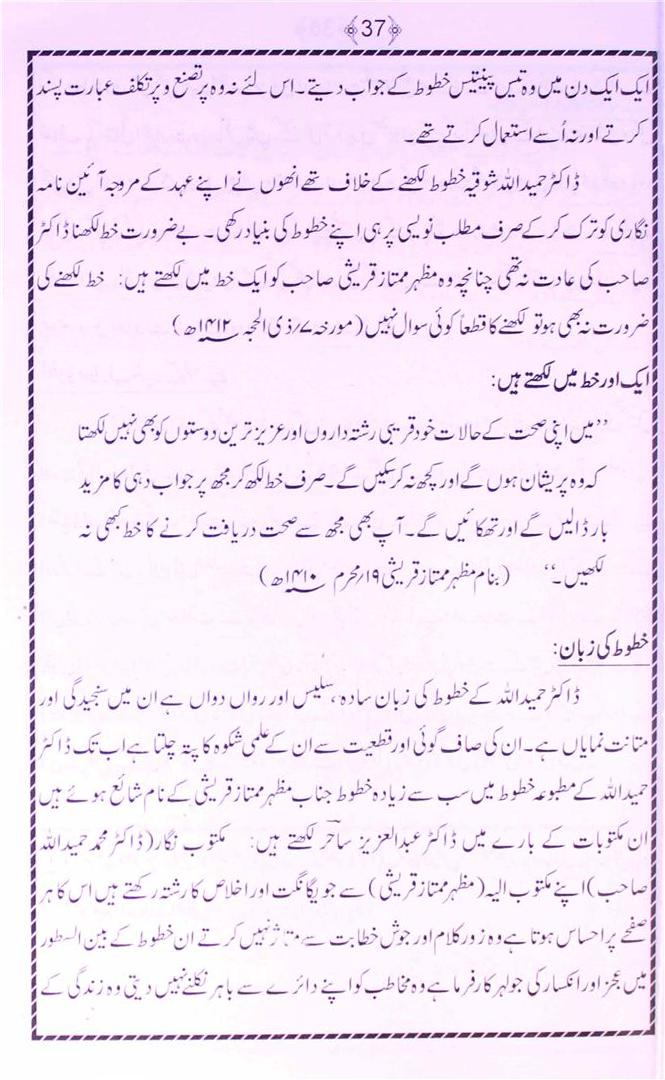 37
ایک ایک دن میں وہ تیس پینتیس خطوط کے جواب دیتے۔ اس لئے نہ وہ پر تصنع و پر تکلف عبارت پسند
کرتے اور نہ اُسے استعمال کرتے تھے۔
ڈاکٹر حمید اللہ شوقیہ خطوط لکھنے کے خلاف تھے انھوں نے اپنے عہد کے مروجہ آئین نامہ
نگاری کو ترک کر کے صرف مطلب نویسی پر ہی اپنے خطوط کی بنیاد رکھی۔ بے ضرورت خط لکھنا ڈاکٹر
صاحب کی عادت نہ تھی چنانچہ وہ مظہر ممتاز قریشی صاحب کو ایک خط میں لکھتے ہیں: خط لکھنے کی
ضرورت نہ بھی ہو تو لکھنے کا قطعاً کوئی سوال نہیں (مورخہ ۷/ذی الحجہ ۱۴۱۲ھ)
ایک اور خط میں لکھتے ہیں:
”میں اپنی صحت کے حالات خود قریبی رشتہ داروں اور عزیز ترین دوستوں کو بھی نہیں لکھتا
کہ وہ پریشان ہوں گے اور کچھ نہ کر سکیں گے۔ صرف خط لکھ کر مجھ پر جواب دہی کا مزید
بار ڈالیں گے اور تھکائیں گے۔ آپ بھی مجھ سے صحت دریافت کرنے کا خط کبھی نہ
لکھیں۔“ (بنام مظہر ممتاز قریشی ۱۹/محرم ۱۴۱۰ھ)
خطوط کی زبان:
ڈاکٹر حمید اللہ کے خطوط کی زبان سادہ، سلیس اور رواں دواں ہے ان میں سنجیدگی اور
متانت نمایاں ہے۔ ان کی صاف گوئی اور قطعیت سے ان کے علمی شکوہ کا پتہ چلتا ہے اب تک ڈاکٹر
حمید اللہ کے مطبوعہ خطوط میں سب سے زیادہ خطوط جناب مظہر ممتاز قریشی کے نام شائع ہوئے ہیں
ان مکتوبات کے بارے میں ڈاکٹر عبدالعزیز ساحر لکھتے ہیں: مکتوب نگار (ڈاکٹر محمد حمید اللہ
صاحب) اپنے مکتوب الیہ (مظہر ممتاز قریشی) سے جو یگانگت اور اخلاص کا رشتہ رکھتے ہیں اس کا ہر
صفحے پر احساس ہوتا ہے وہ زور کلام اور جوش خطابت سے متاثر نہیں کرتے ان خطوط کے بین السطور
میں عجز اور انکسار کی جو لہر کارفرما ہے وہ مخاطب کو اپنے دائرے سے باہر نکلنے نہیں دیتی وہ زندگی کے